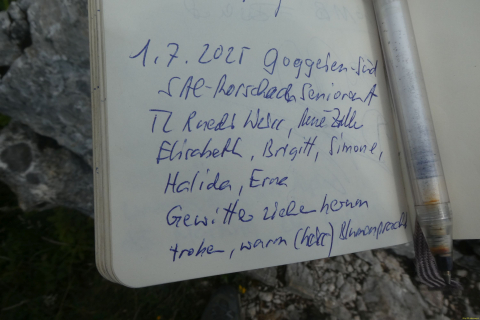 1.7.2025 Goggeien-Süd
SAC-Rorschach Senioren A
TL Ruedi Weier, René Zoller
Elisabeth, Brigitt, Simone,
Halida, Erna
Gewitter ziehen herum
trocken, warm (heiss) Blumenpracht